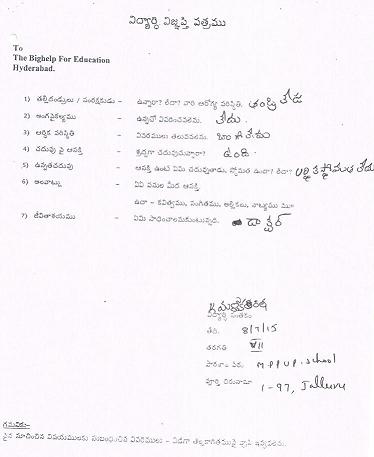 విద్యార్థి విజ్ఞప్తి పత్రము
To
The Bighelp For Education
Hyderabad.
1) తల్లిదండ్రులు / సంరక్షకుడు - ఉన్నారా? లేదా? వారి ఆరోగ్య పరిస్థితి. తండ్రి లేడు
2) అంగవైకల్యము - ఉన్నచో వివరించవలెను. లేదు.
3) ఆర్థిక పరిస్థితి - వివరములు తెలుపవలెను. బాగోలేదు
4) చదువు పై ఆసక్తి - శ్రద్ధగా చదువుచున్నారా? ఉంది.
5) ఉన్నతచదువు - ఆసక్తి ఉంటే ఏమి చదువుతాడు, స్తోమత ఉందా? లేదా? ఆర్థిక స్తోమత లేదు
6) అలవాట్లు - ఏవి పనుల మీద ఆసక్తి
ఉదా - కవిత్వము, సంగీతము, అల్లికలు, నాట్యము మొ
7) జీవితాశయము - ఏమి సాధించాలనుకుంటున్నది. డాక్టర్
విద్యార్థి సంతకం
తేది. 8/7/15
తరగతి VII
పాఠశాల పేరు M P P U P. School
పూర్తి చిరునామా 1-97, Jalluru
గమనిక:-
పైన సూచించిన విషయములకు సంబంధించిన వివరములు - విడిగా తెల్లకాగితముపై వ్రాసి ఇవ్వవలెను.